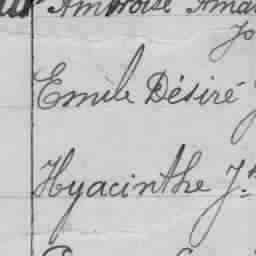 Ambroise
Emile Désiré
Hyacinthe J.h